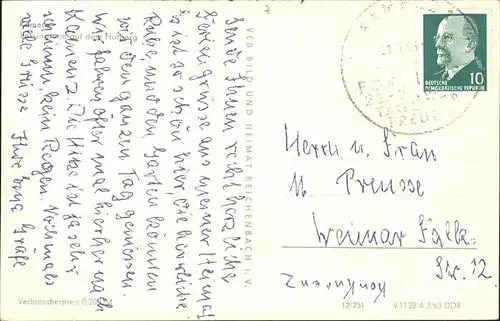 Kamenz
auf dem Hutberg
Sende Ihnen recht herzliche
Feriengrüsse aus meiner Heimat
Es ist so schön hier die herrliche
Ruhe, und den Garten können
wir den ganzen Tag geniessen
Wir fahren öfter mal hierher nach
Kamenz. Die Hitze ist ja sehr
schlimm, kein Regen. Nochmals
viele Grüsse Ihre Gräfe
Verbraucherpreis 0,20
VEB BILD UND HEIMAT REICHENBACH i. V.
DEUTSCHE
DEMOKRATISCHE REPUBLIK
10
Herrn u. Frau
Preusse
Weimar
Str. 12
12/251 V 11 28 A 3/63 DDR